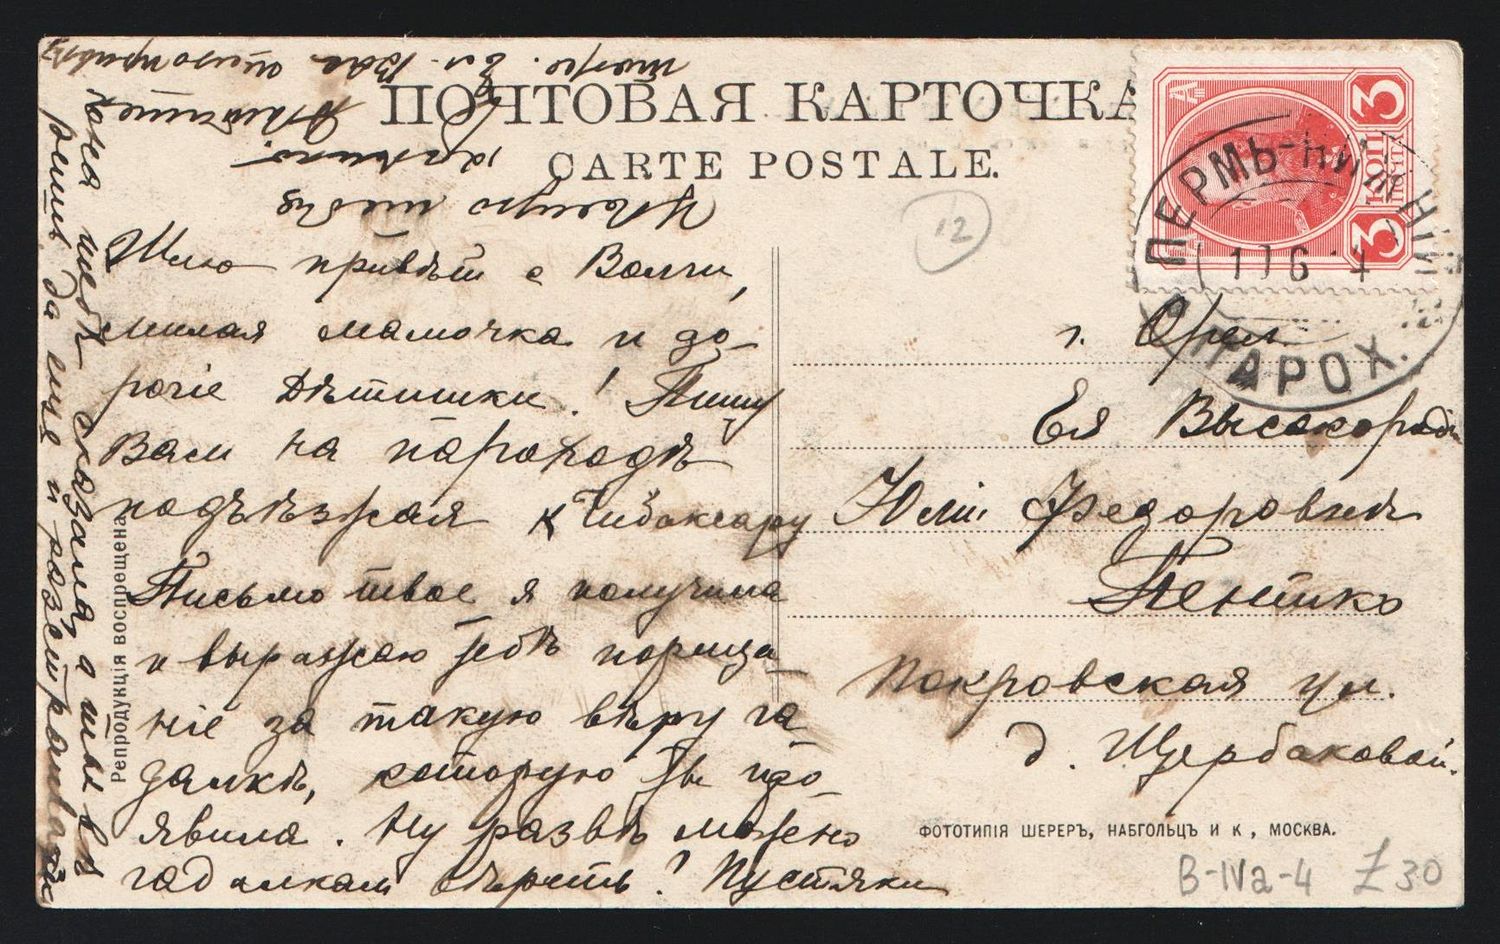 ПОЧТОВАЯ КАРТОЧКА
CARTE POSTALE.
12
3 КОП 3
ПЕРМЬ-НИЖНІЙ
ПАРОХ.
Шлю привѣт с Волги,
милая мамочка и до-
рогіе дѣтишки! Пишу
Вам на пароходѣ
подъѣзжая к Чибоксару
Письмо твое я получила
и выражаю тебѣ порица-
ніе за такую вѣру га
далкѣ, которую ты про-
явила. Ну развѣ можно
гадалкам вѣрить! Пустяки
она тебѣ сказала а ты в
да еще и
Цѣлую тебя
крѣпко.
г. Орел
Ея Высокород
Юліи Федоровнѣ
Пентко
Покровская ул.
д. Щербаковой.
Репродукція воспрещена
ФОТОТИПІЯ ШЕРЕРЪ, НАБГОЛЬЦЪ И К, МОСКВА.
B-IVa-4 £30